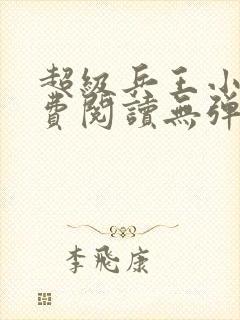 超級兵王小
費閱讀無彈
李飛康